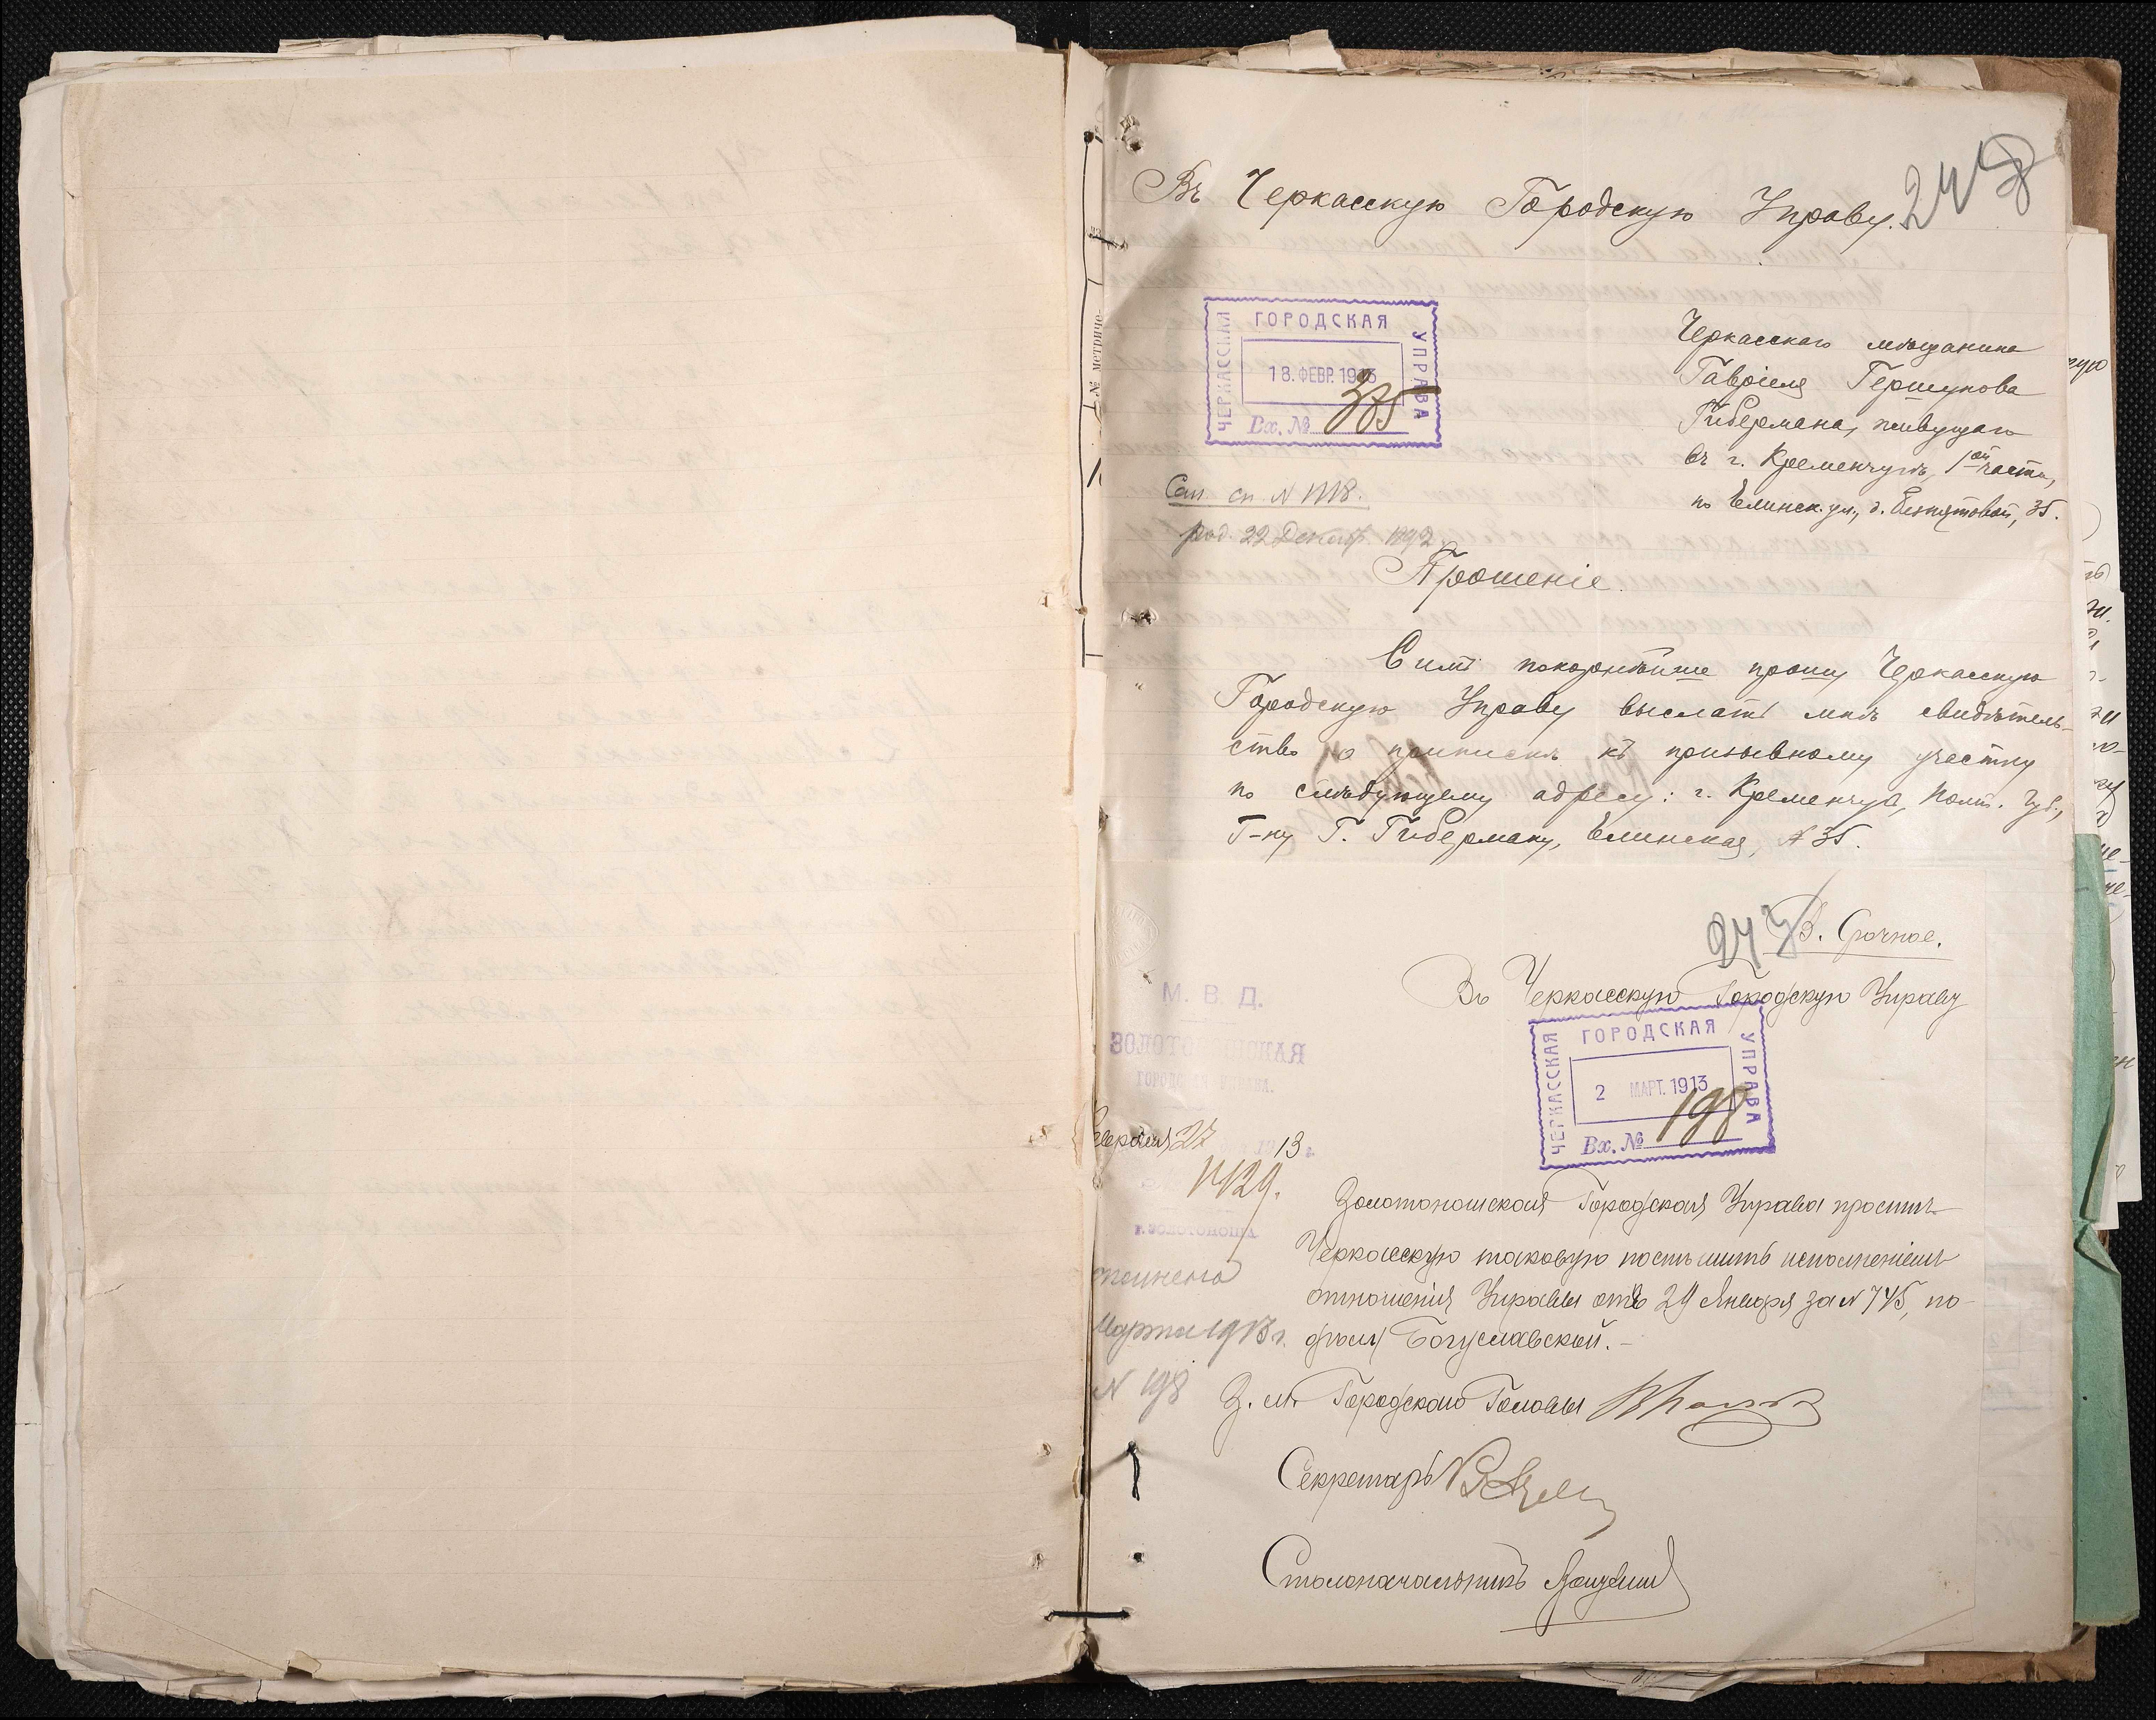 Въ Черкасскую Городскую Управу.
ЧЕРКАССКАЯ ГОРОДСКАЯ УПРАВА
18. ФЕВР. 1913
Вх. № 375
Черкасскаго мѣщанина
Гавріеля Гершунова
Гибермана, живущаго
въ г. Кременчугѣ, 1ой части,
по Елинск. ул., д. 35.
род. 22 Декабр. 1892
Прошеніе.
Симъ покорнѣйше прошу Черкасскую
Городскую Управу выслать мнѣ свидѣтель-
ство о припискѣ къ призывному участку
по слѣдующему адресу: г. Кременчуг, Полт. губ.,
Г-ну Г. Гиберману, Елинская, № 35.
В. Срочное.
Въ Черкасскую Городскую Управу
М. В. Д.
ЧЕРКАССКАЯ ГОРОДСКАЯ УПРАВА
2 МАРТ. 1913
Вх. № 198
27 1913 г.
№ 1129.
г. Золотоноша
Золотоношская Городская Управа проситъ
Черкасскую таковую поспѣшить исполненіемъ
отношенія Управы отъ 24 Января за № 745, по
дѣлу Богуславской.-
Марта 1913 г.
№ 198
З. м. Городского Головы
Секретарь
Столоначальникъ